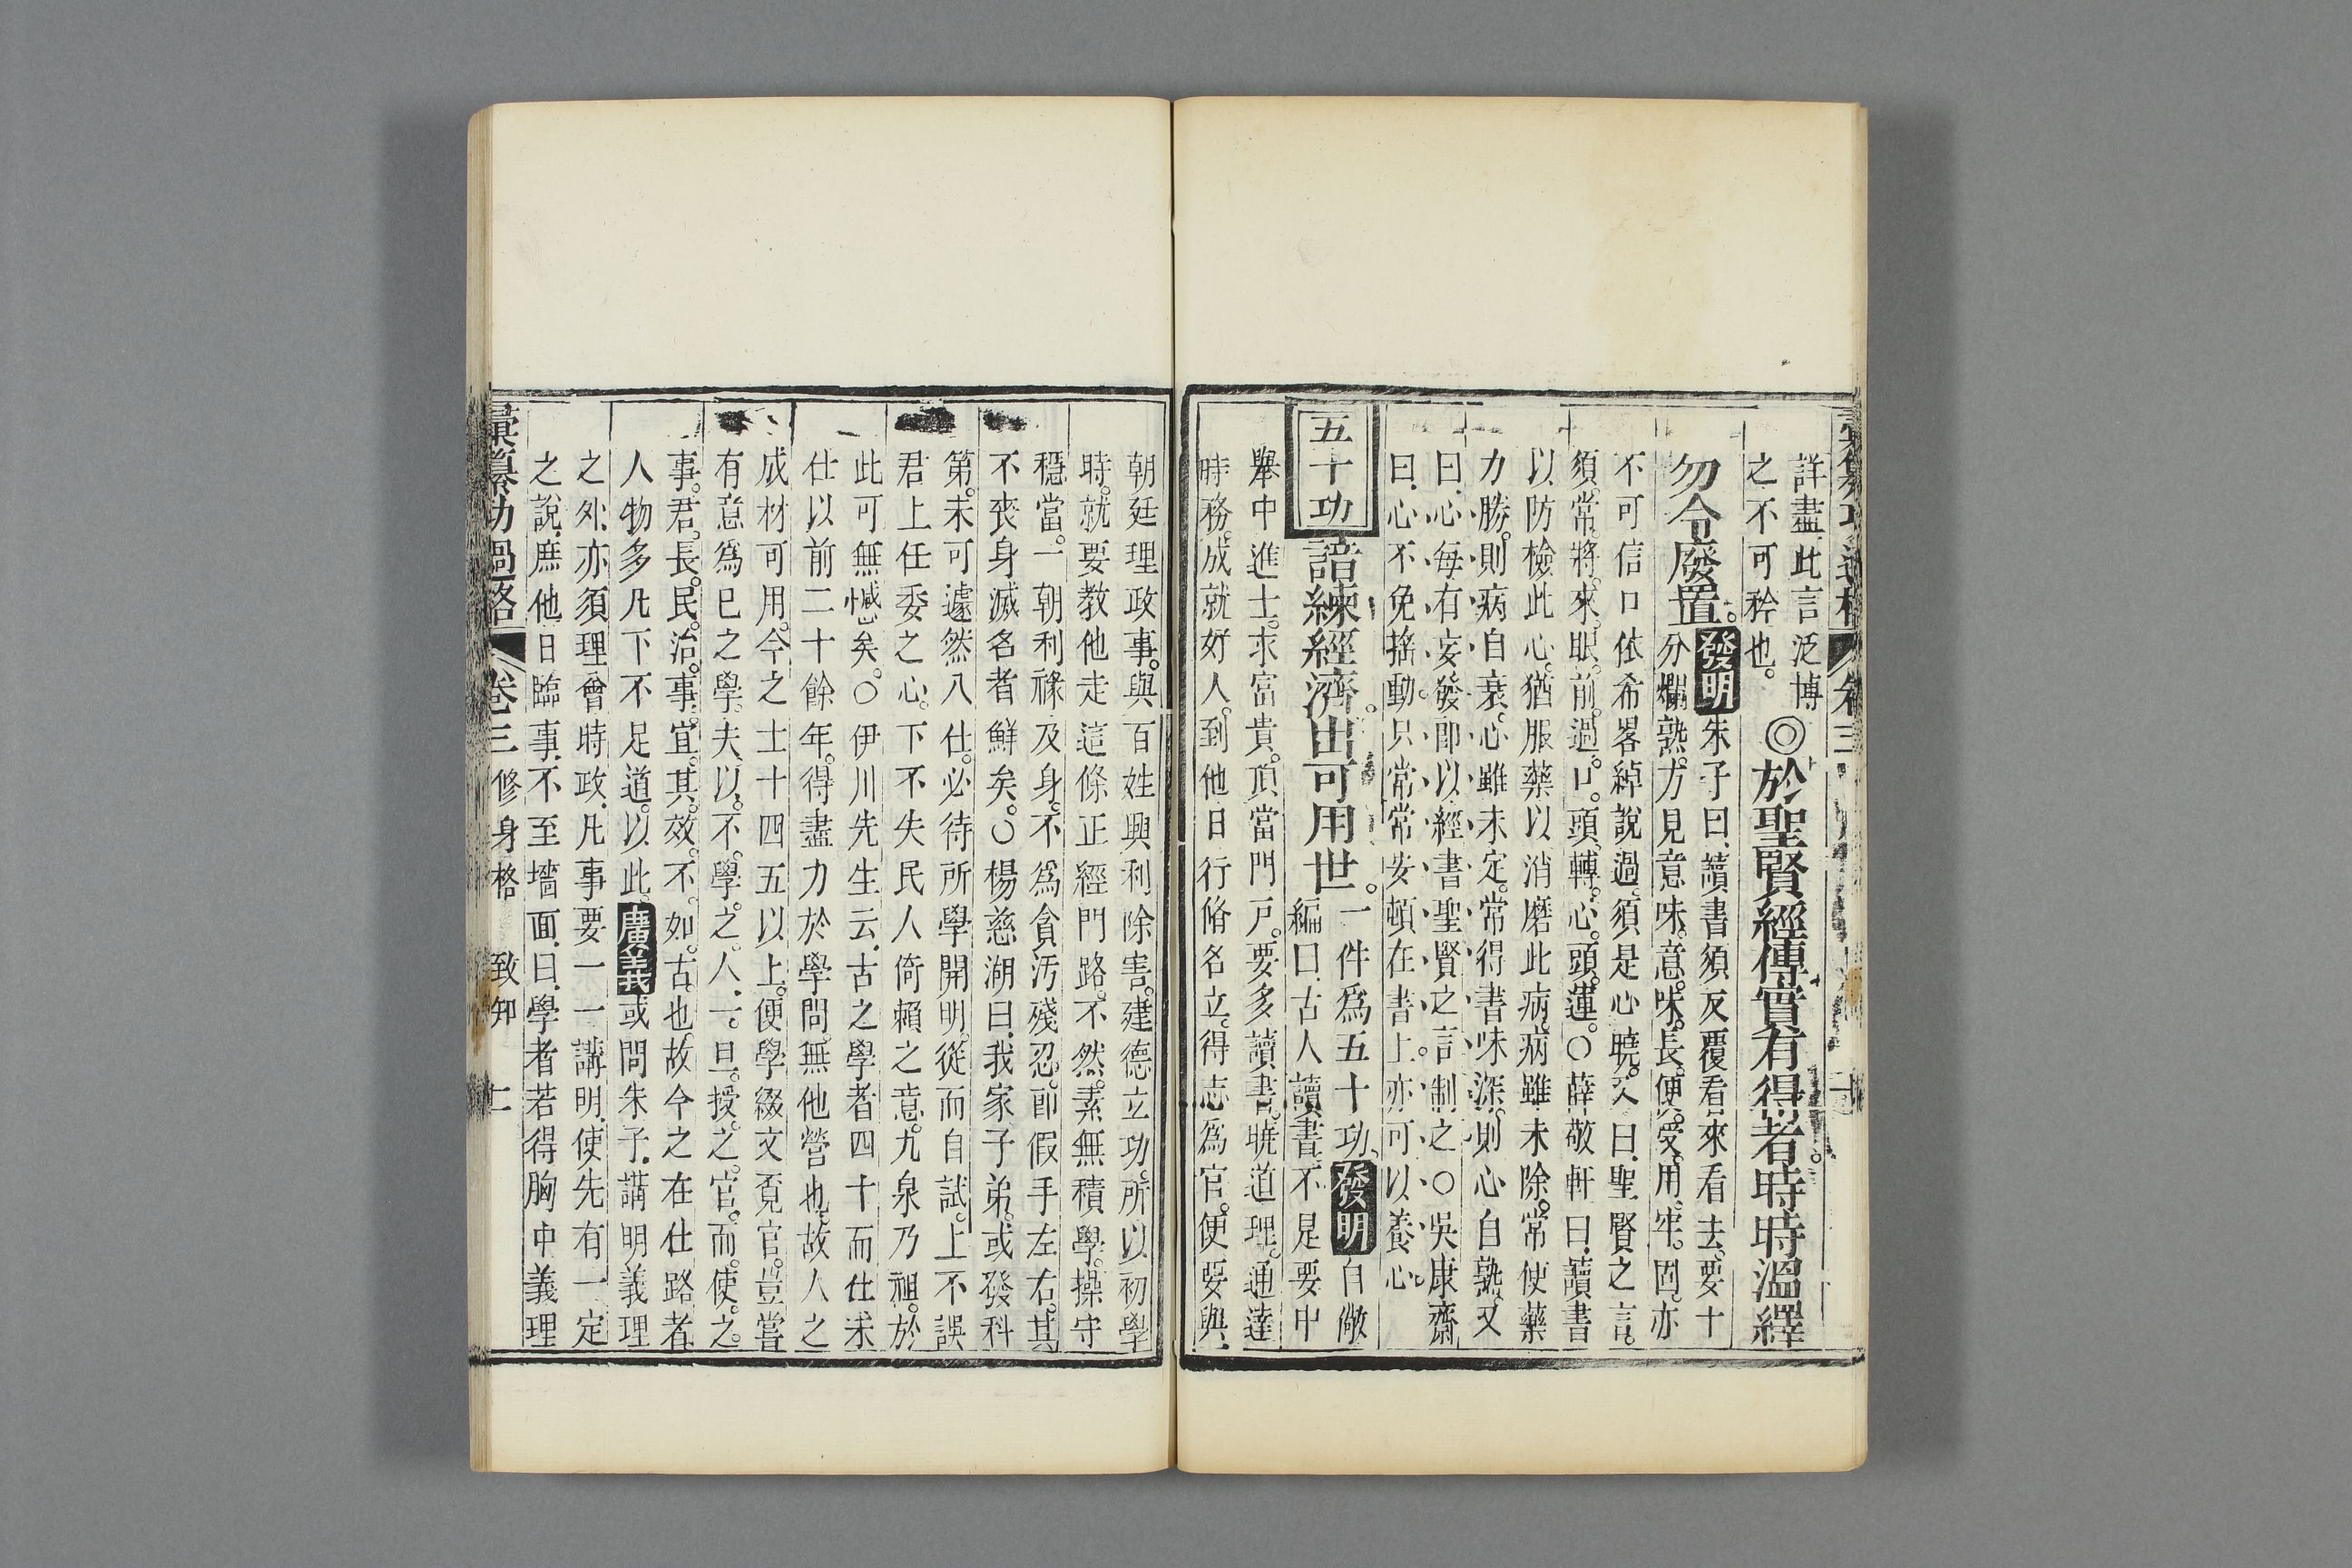 詳盡此言泛博
之不可矜也。
◎於聖賢經傳實有得者時時溫繹
勿令廢置。
發明
朱子曰讀書須反覆看來看去要十
分爛熟方見意味意味長便受用牢固亦
不可信口依希畧綽說過須是心曉又曰聖賢之言
須常將來眼前過口頭轉心頭運○薛敬軒曰讀書
以防檢此心猶服藥以消磨此病病雖未除常使藥
力勝則病自衰心雖未定常得書味深則心自熟又
曰心每有妄發卽以經書聖賢之言制之○吳康齋
曰心不免搖動只常常安頓在書上亦可以養心
五十功
諳練經濟出可用世。
一件爲五十功
發明
白儆
編曰古人讀書不是要中
舉中進士求富貴頂當門戸要多讀書曉道理通達
時務成就好人到他日行脩名立得志爲官便要與
朝廷理政事與百姓興利除害建德立功所以初學
時就要教他走這條正經門路不然素無積學操守
穩當一朝利祿及身不爲貪汚殘忍卽假手左右其
不喪身滅名者鮮矣○楊慈湖曰我家子弟或發科
第未可遽然入仕必待所學開明從而自試上不誤
君上任委之心下不失民人倚賴之意九泉乃祖於
此可無憾矣○伊川先生云古之學者四十而仕未
仕以前二十餘年得盡力於學問無他營也故人之
成材可用今之士十四五以上便學綴文覓官豈嘗
有意爲已之學夫以不學之人一旦授之官而使之
事君長民治事宜其效不如古也故今之在仕路者
人物多凡下不足道以此
廣義
或問朱子講明義理
之外亦須理會時政凡事要一一講明使先有一定
之說庶他日臨事不至墻面曰學者若得胸中義理
彙纂功過格
卷三
修身格
致知